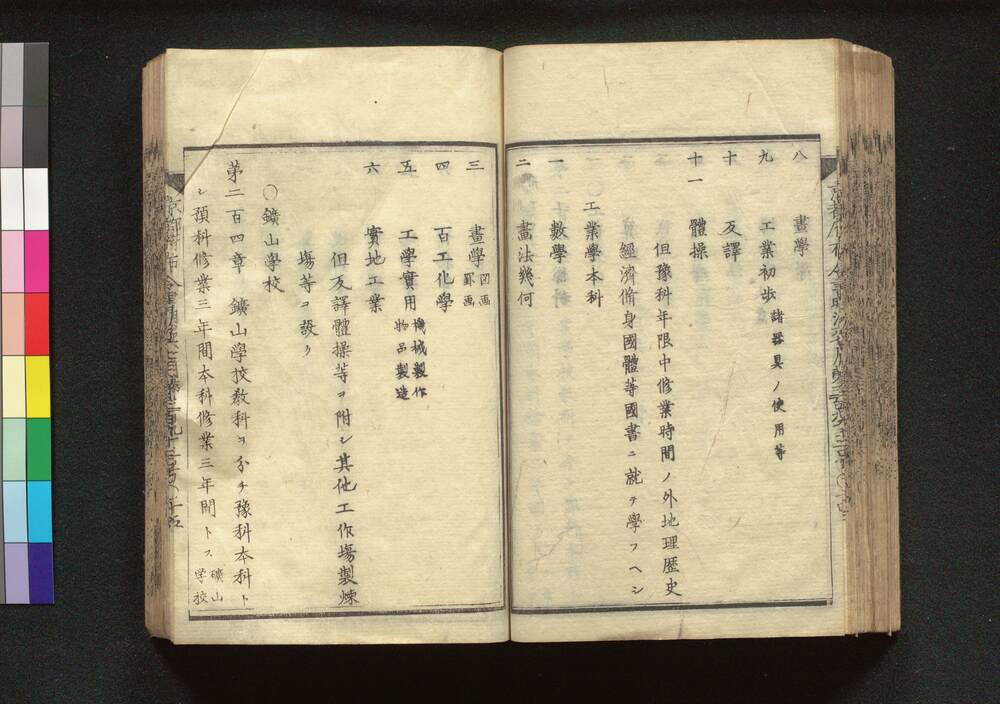 八　畫學
九　工業初歩 諸器具ノ使用等
十　反譯
十一　體操
但豫科年限中修業時間ノ外地理歴史
經濟脩身國體等國書ニ就テ學フヘシ
工業學本科
一　數學
二　畫法幾何
三　畫學 図画 罫画
四　百工化學
五　工學實用 機械製作 物品製造
六　實地工業
但反譯體操等ヲ附シ其他工作塲製煉
塲等ヲ設ク
○鑛山學校
第二百四章　鑛山學校敎科ヲ分チ豫科本科ト
シ預科修業三年間本科修業三年間トス 礦山 学校